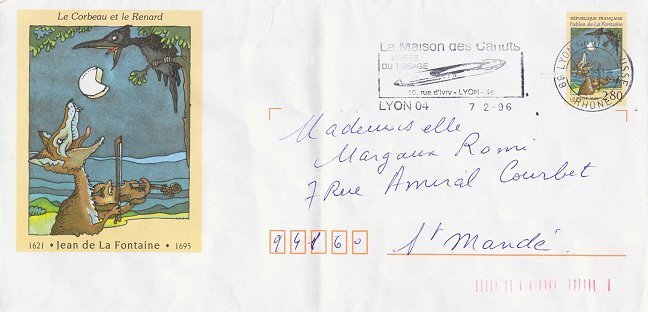 Le Corbeau et le Renard
1621 • Jean de La Fontaine • 1695
La Maison des Canuts
MUSEE
DU TISSAGE
10, rue d'Ivry - LYON - 4e
LYON 04 7 2-96
RÉPUBLIQUE FRANÇAISE
Fables de La Fontaine
LYON
RHONE
2,80
Mademoiselle
Margaux Romi
7 Rue Amiral Courbet
94160 St Mandé.